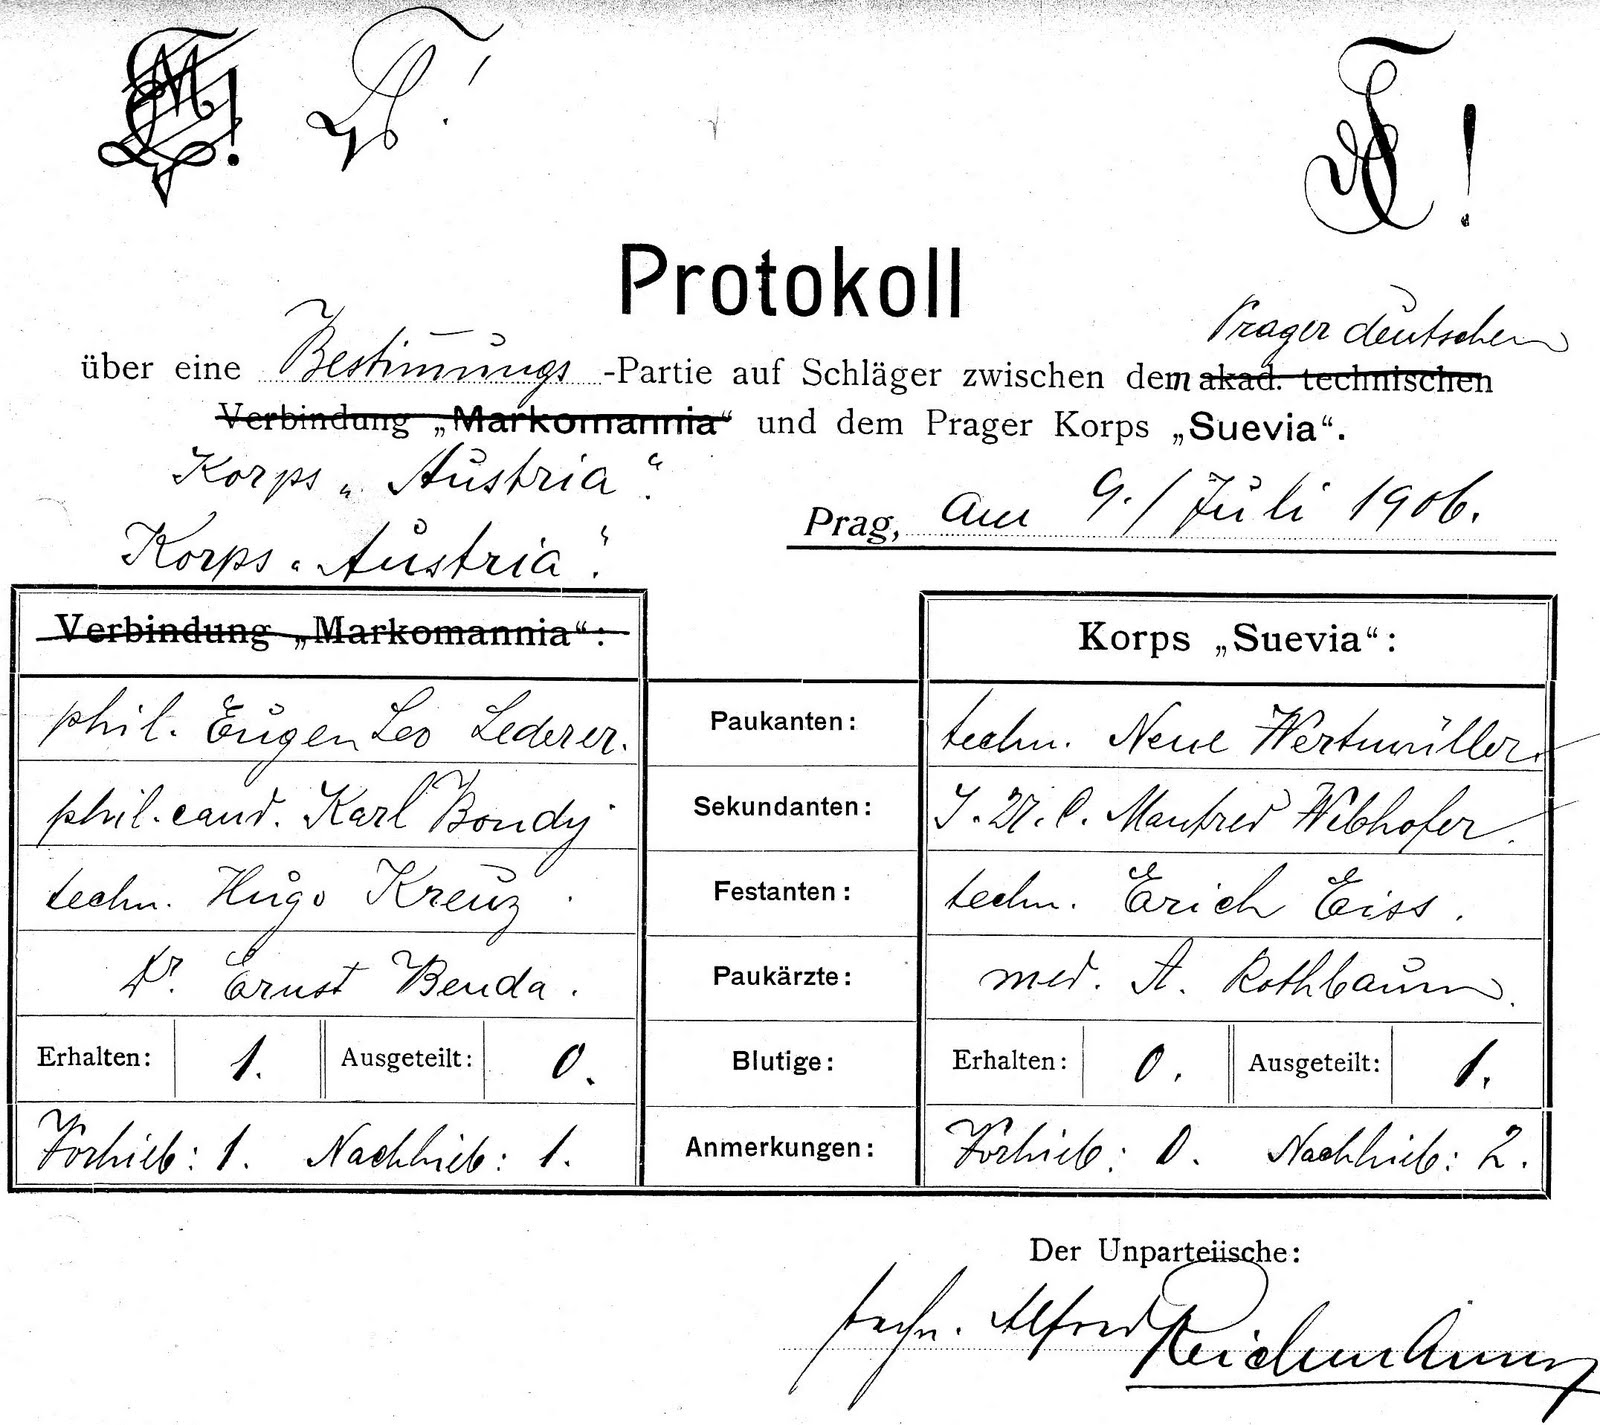 Protokoll
Prager deutschen
über eine Bestimmungs-Partie auf Schläger zwischen dem akad. technischen
Verbindung „Markomannia“ und dem Prager Korps „Suevia“.
Korps „Austria“.
Prag, am 9./Juli 1906.
Korps „Austria“.
Verbindung „Markomannia“: Korps „Suevia“:
phil. Eugen Leo Lederer. Paukanten: techn. Wertmüller.
phil. cand. Karl Bondy Sekundanten: J. U. C. Manfred Webhofer.
techn. Hugo Kreuz. Festanten: techn. Erich Eiss.
Dr. Ernst Benda. Paukärzte: med. A. Rothbaum.
Erhalten: 1. Ausgeteilt: 0. Blutige: Erhalten: 0. Ausgeteilt: 1.
Vorhieb: 1. Nachhieb: 1. Anmerkungen: Vorhieb: 0. Nachhieb: 2.
Der Unparteiische:
techn. Alfred